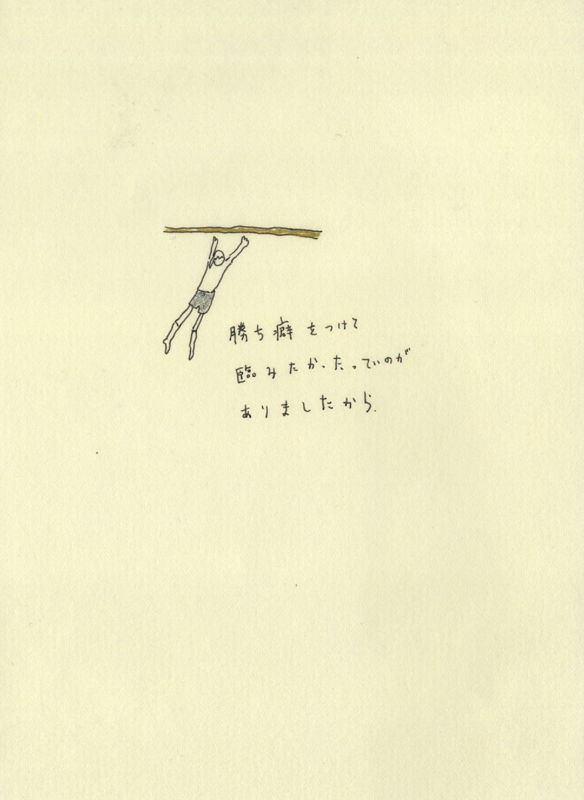 勝ち癖をつけて
臨みたかったっていのが
ありましたから.